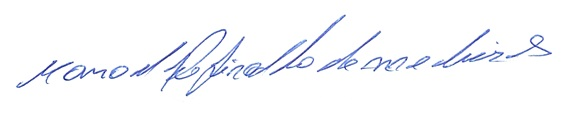 Manoel Reginaldo de medeiros